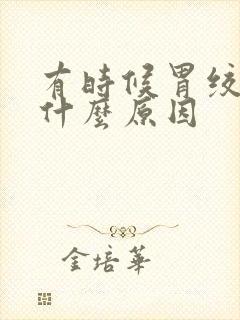 有時候胃绞
什麼原因
金培華